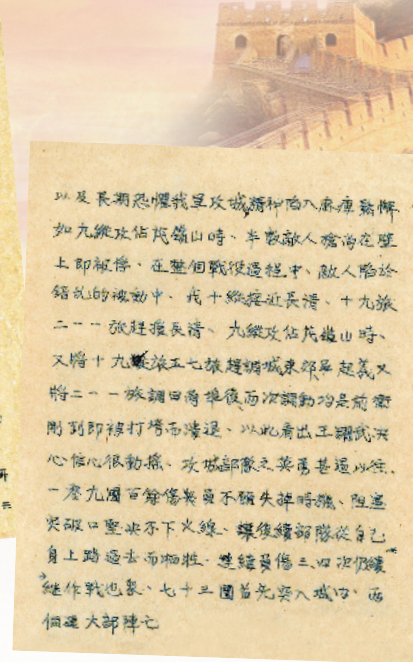 以及長期恐懼我軍攻城精神陷入麻痺鬆懈
如九縱攻佔茂嶺山時、半數敵人槍尚在壁
上即被俘、在整個戰役過程中、敵人陷於
錯亂的被動中、我十縱接近長清、十九旅
二一一旅趕援長清、九縱攻佔茂嶺山時、
又將十九旅五七旅趕調城東郊吳起義又
將二一一旅調回商埠後兩次調動均是前衛
剛到即被打垮而潰退、以此看出王耀武決
心信心很動搖、攻城部隊之英勇甚過以往、
一零九團百餘傷員不願失掉時機、阻塞
突破口堅決不下火線、讓後續部隊從自己
身上踏過去而牺牲、連續負傷三四次仍繼
續作戰也衆、七十三團首先突入城內、兩
個連大部陣亡